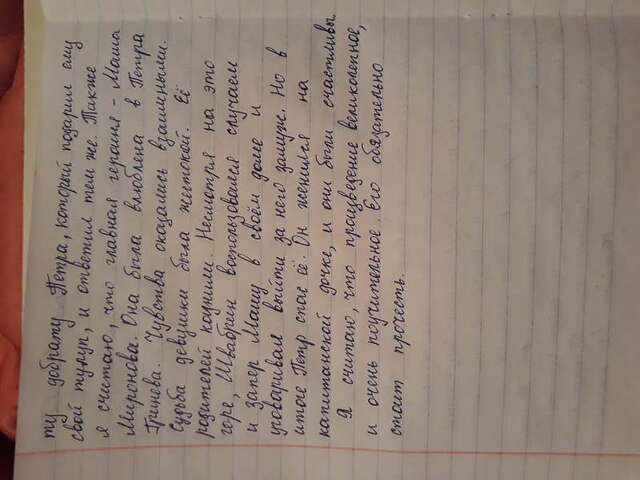 ту доброту Петра, который подарил ему
свой тулуп, и ответил тем же. Также
я считаю, что главная героиня - Маша
Миронова. Она была влюблена в Петра
Гринева. Чувства оказались взаимными.
Судьба девушки была жестокой. Её
родителей казнили. Несмотря на это
горе, Швабрин воспользовался случаем
и запер Машу в своём доме и
уговаривал выйти за него замуж. Но в
итоге Петр спас её. Он женился на
капитанской дочке, и они были счастливы.
Я считаю, что произведение великолепное,
и очень поучительное. Его обязательно
стоит прочесть.